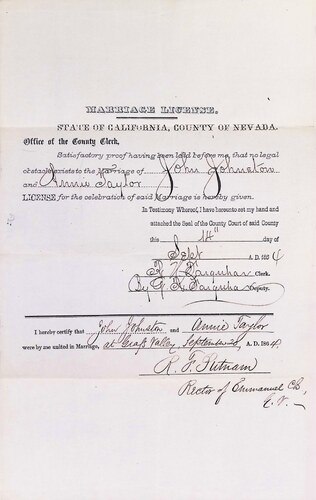 MARRIAGE LICENSE.
STATE OF CALIFORNIA, COUNTY OF NEVADA.
Office of the County Clerk,
Satisfactory proof having been laid before me, that no legal
obstacle exists to the Marriage of John Johnston
and Annie Taylor
LICENSE for the celebration of said Marriage is hereby given.
In Testimony Whereof, I have hereunto set my hand and
attached the Seal of the County Court of said County
this 14th day of
Sept A. D. 1864
Farquhar Clerk.
By Farquhar Deputy.
I hereby certify that John Johnston and Annie Taylor
were by me united in Marriage, at Grass Valley, September A. D. 1864
R. F. Putnam
Rector of Emmanuel Ch,
G. V.